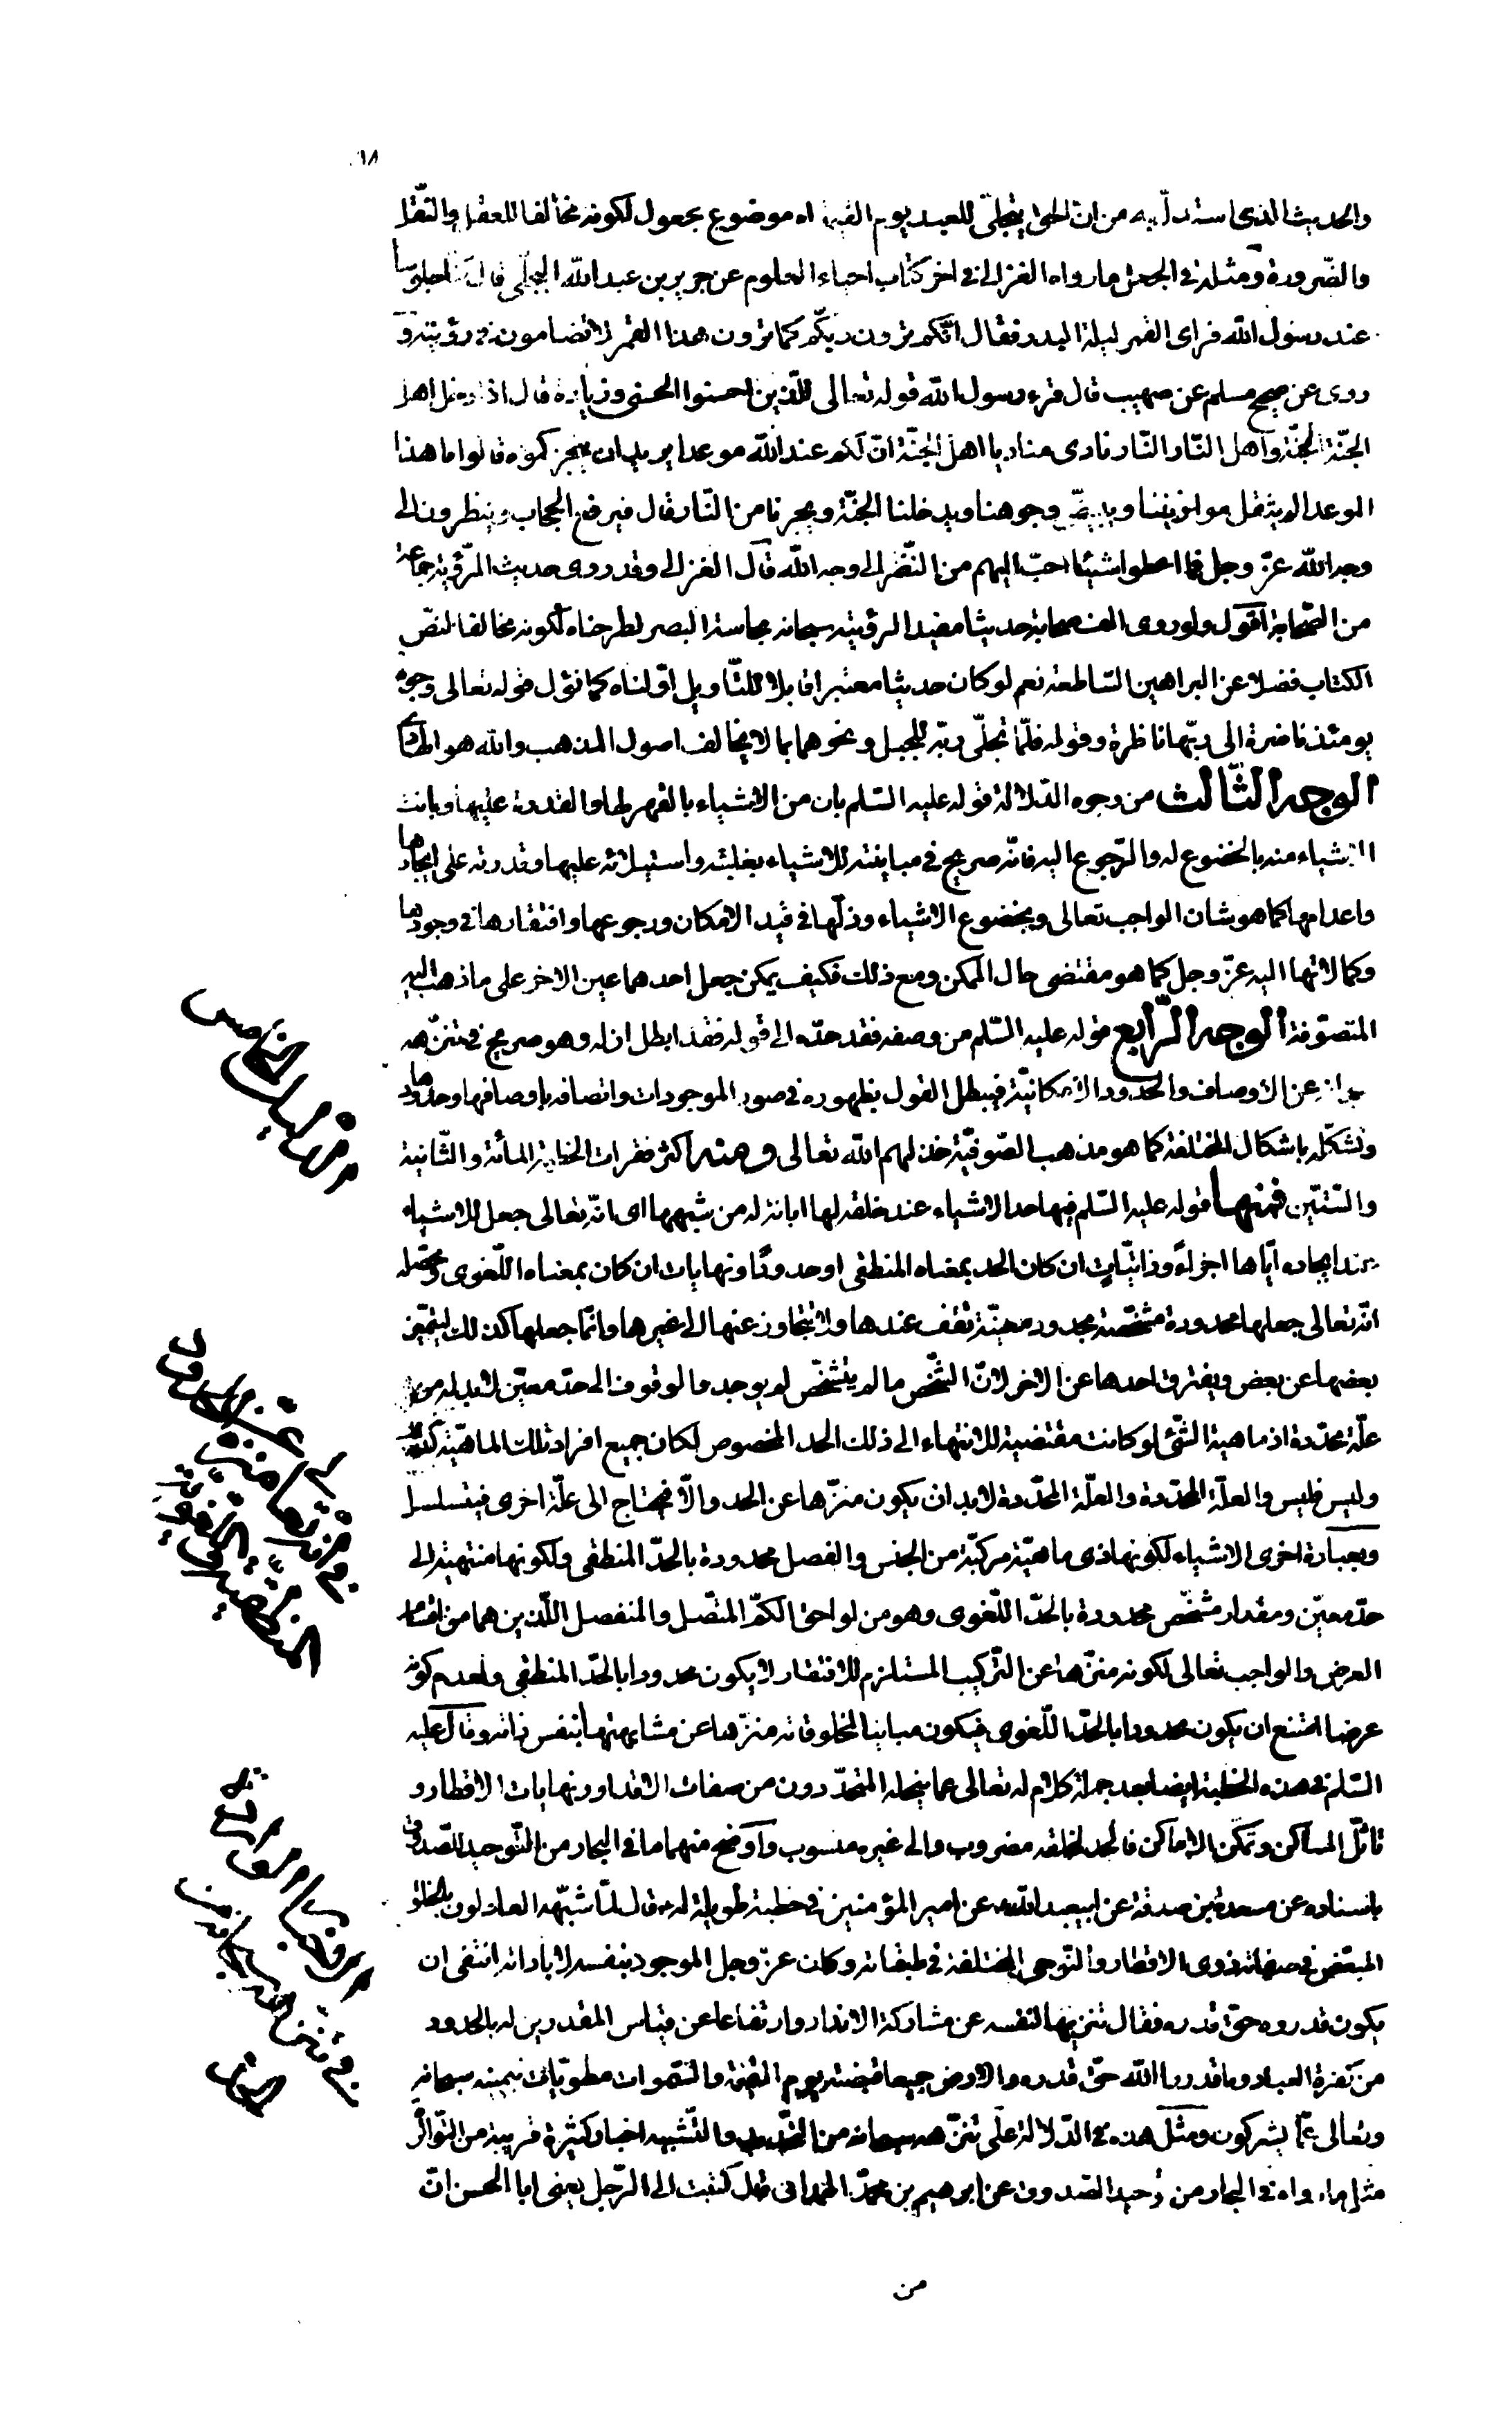 ١٨
والحديث الذى استدلّ به من ان الحق يتجلّى للعبد يوم القيمة اه موضوع مجعول لكونه مخالفا للعقل والنّقل
والضّرورة ومثله فى الجعل ما رواه الغزالى فى اخر كتاب احياء العلوم عن جرير بن عبدالله البجلّى قال كنّا جلوسا
عند رسول الله فراى القمر ليلة البدر فقال انّكم ترون ربّكم كما ترون هذا القمر لا تضامون فى رؤيته و
روى عن صحيح مسلم عن صهيب قال قرء رسول الله قوله تعالى للّذين احسنوا الحسنى وزيادة قال اذا دخل اهل
الجنّة الجنّة واهل النّار النّار نادى مناد يا اهل الجنّة انّ لكم عند الله موعدا يريد ان ينجزكموه قالوا ما هذا
الموعد الم يثقل موازيننا ويبيّض وجوهنا ويدخلنا الجنّة ويجرنا من النّار قال فيرفع الحجاب وينظرون الى
وجه الله عزّ وجل فما اعطوا شيئا احبّ اليهم من النّظر الى وجه الله قال الغزالى وقد روى حديث الرّؤية جماعة
من الصّحابة اقول ولو روى الف صحابة حديثا مفيدا لرؤيته سبحانه بحاسة البصر لطرحناه لكونه مخالفا لنصّ
الكتاب فضلا عن البراهين السّاطعة نعم لو كان حديثا معتبرا قابلا للتّاويل اوّلناه كما نؤل قوله تعالى وجوه
يومئذ ناضرة الى ربّها ناظرة وقوله فلمّا تجلّى ربّه للجبل ونحوهما بما لا يخالف اصول المذهب والله هو الهادى
الوجه الثّالث من وجوه الدّلالة قوله عليه السّلم بان من الاشياء بالقهر لها والقدرة عليها وبانت
الاشياء منه بالخضوع له والرّجوع اليه فانّه صريح فى مباينته للاشياء بغلبته واستيلائه عليها وقدرته على ايجادها
واعدامها كما هو شان الواجب تعالى وبخضوع الاشياء وذلّها فى قيد الامكان ورجوعها وافتقارها فى وجودها
وكمالاتها اليه عزّ وجل كما هو مقتضى حال الممكن ومع ذلك فكيف يمكن جعل احدهما عين الاخر على ما ذهب اليه
المتصوّفة الوجه الرّابع قوله عليه السّلم من وصفه فقد حدّه الى قوله فقد ابطل ازله وهو صريح فى تنزّهه
سبحانه عن الاوصاف والحدود الامكانيّة فيبطل القول بظهوره فى صور الموجودات واتصافه باوصافها وحدودها
وتشكّله باشكال المختلفة كما هو مذهب الصّوفيّة خذلهم الله تعالى ومنه اكثر فقرات الخطبة المأئة والثّانية
والسّتّين فمنها قوله عليه السّلم فيها حد الاشياء عند خلقه لها ابانة له من شبهها اى انّه تعالى جعل للاشياء
عند ايجاده ايّاها اجزاءً وذاتيّاتٍ ان كان الحد بمعناه المنطقى او حدودًا ونهايات ان كان بمعناه اللّغوى ومحصّله
انّه تعالى جعلها محدودة مشخّصة بحدود معيّنة تقف عندها ولا تتجاوز عنها الى غيرها وانّما جعلها كذلك ليتميّز
بعضها عن بعض ويفترق احدها عن الاخر لانّ الشّخص ما لم يتشخّص لم يوجد فالوقوف الى حدّ معيّن لابدله من
علّة محدّدة اذ ماهية الشّئ لو كانت مقتضية للانتهاء الى ذلك الحد المخصوص لكان جميع افراد تلك الماهيّة كذلك
وليس فليس والعلّة المحدّدة والعلّة المحدّدة لابد ان يكون منزّها عن الحد والّا فيحتاج الى علّة اخرى فيتسلسل
وبعبارة اخرى الاشياء لكونها ذى ماهيّة مركبّة من الجنس والفصل محدودة بالحدّ المنطقى ولكونها منتهية الى
حدّ معيّن ومقدار مشخّص محدودة بالحدّ اللّغوى وهو من لواحق الكمّ المتّصل والمنفصل اللّذين هما من اقسام
العرض والواجب تعالى لكونه منزّها عن التّركيب المستلزم للافتقار لا يكون محدودا بالحدّ المنطقى ولعدم كونه
عرضا امتنع ان يكون محدودا بالحدّ اللّغوى فيكون مباينا لمخلوقاته منزّها عن مشابهتها بنفس ذاته وقال عليه
السّلم فى هذه الخطبة ايضا بعد جملة كلام له تعالى عما ينحله المتحدّدون من صفات الاقدار ونهايات الاقطار و
تاثّل المساكن وتمكّن الاماكن فالحد لخلقه مضروب والى غيره منسوب واوضح منهما ما فى البحار من التّوحيد للصّدوق
باسناده عن مسعدة بن صدقة عن ابيعبدالله عن امير المؤمنين فى خطبة طويلة له قال لمّا شبّهه العادلون بالخلق
المبعّض فى صفاته ذوى الاقطار والنّواحى المختلفة فى طبقاته وكان عزّ وجل الموجود بنفسه لا باداته انتفى ان
يكون قدروه حقّ قدره فقال تنزيها لنفسه عن مشاركة الانداد وارتفاعا عن قياس المقدرين له بالحدود
من كفرة العباد وما قدروا الله حقّ قدره والارض جميعا قبضته يوم القيمة والسّموات مطويّات بيمينه سبحانه
وتعالى عمّا يشركون ومثل هذه فى الدّلالة على تنزّهه سبحانه من التّحديد والتّشبيه اخبار كثيرة قريبة من التّواتر
مثل ما رواه فى البحار من توحيد الصّدوق عن ابرهيم بن محمّد الهمدانى قال كتبت الى الرّجل يعنى ابا الحسن انّ
من